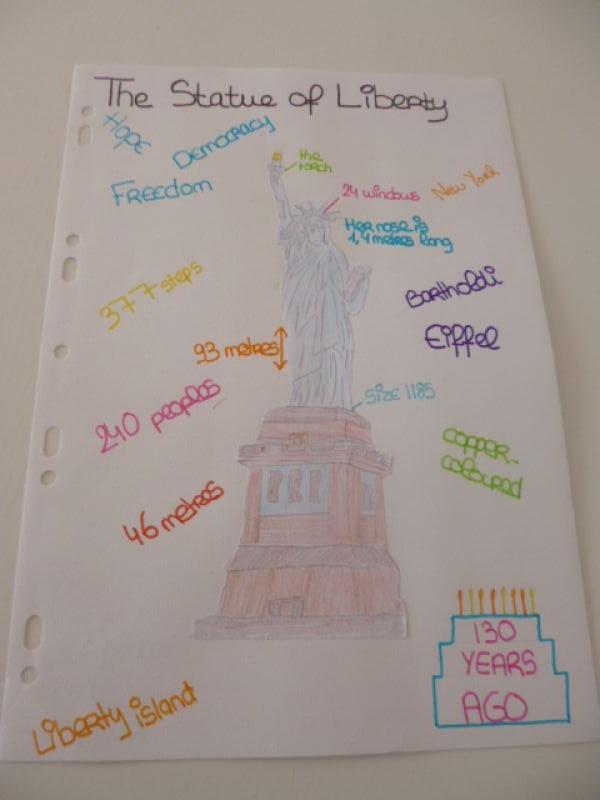 The Statue of Liberty
Hope
Democracy
Freedom
the
torch
24 windows
New York
Her nose is
1,4 metres long
377 steps
Bartholdi
Eiffel
93 metres
Size 1185
240 peoples
copper-
coloured
46 metres
130
YEARS
AGO
Liberty island